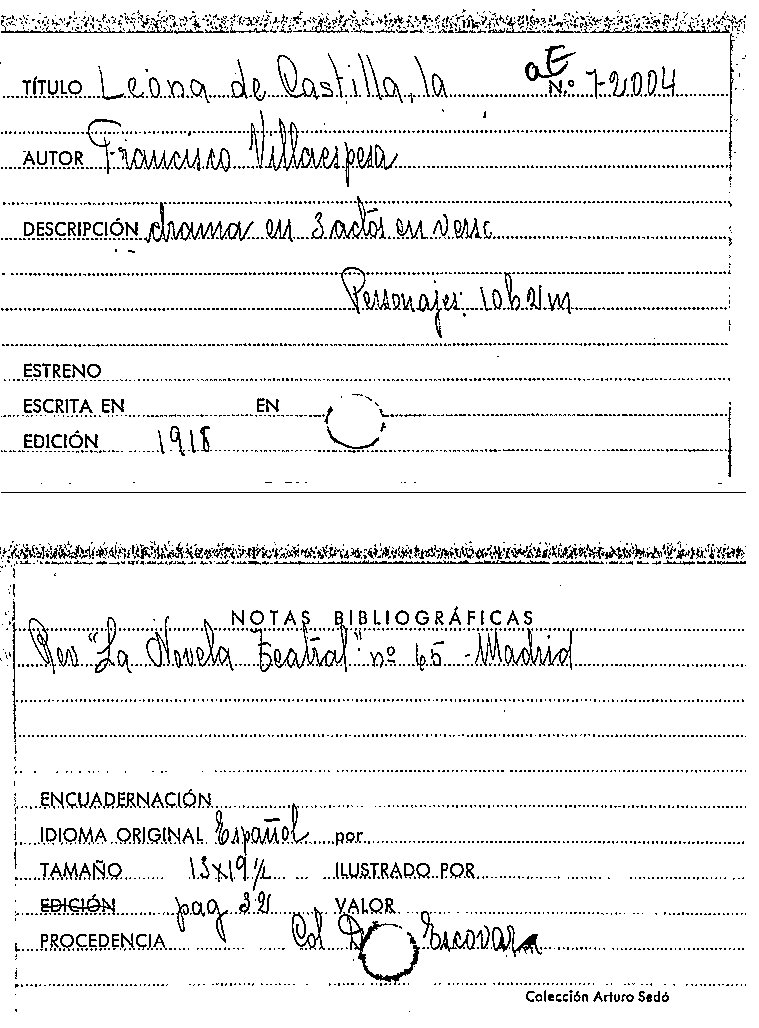 TÍTULO Leona de Castilla, la aE N.º 7-2004
AUTOR Francisco Villaespesa
DESCRIPCIÓN drama en 3 actos en verso
Personajes: 10h 2m
ESTRENO
ESCRITA EN EN
EDICIÓN 1918
NOTAS BIBLIOGRÁFICAS
Rev "La Novela Teatral" nº 65 - Madrid
ENCUADERNACIÓN
IDIOMA ORIGINAL Español por
TAMAÑO 13x19½ ILUSTRADO POR
EDICIÓN pag 32 VALOR
PROCEDENCIA Col Escovar
Colección Arturo Sedó